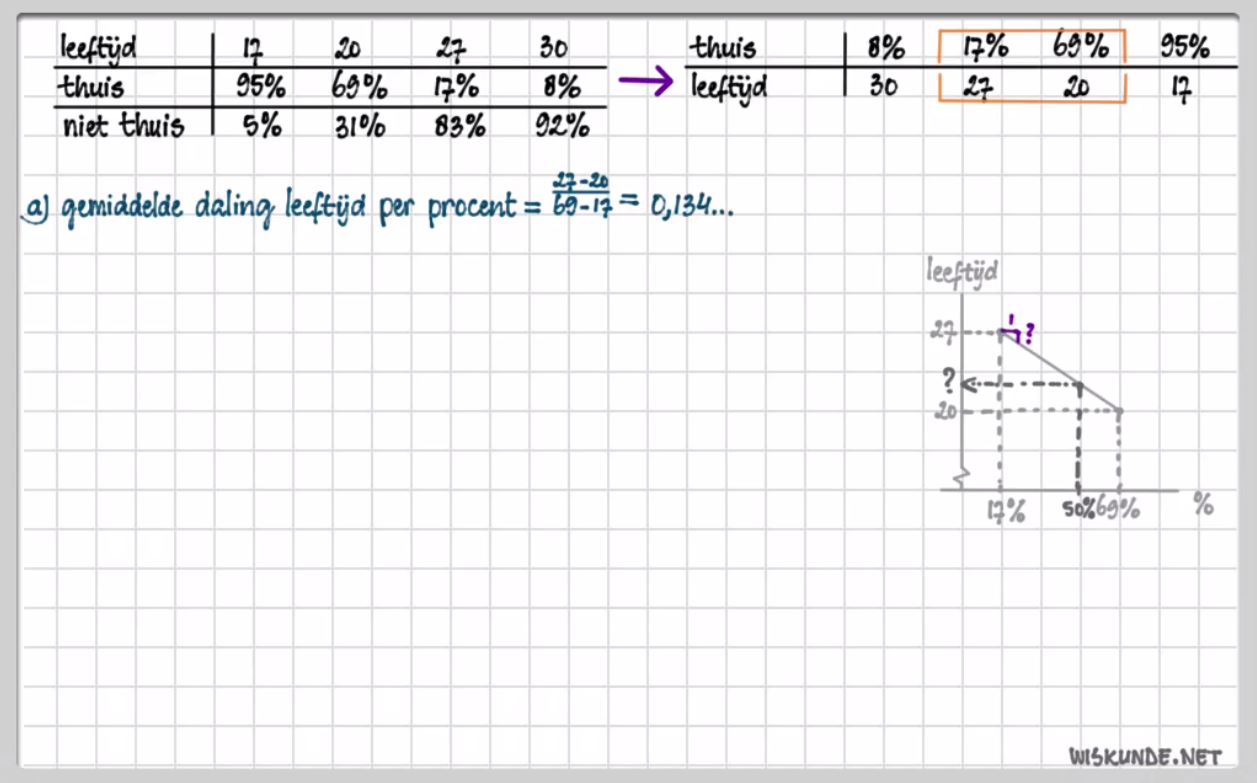 leeftijd 17 20 27 30
thuis 95% 69% 17% 8%
niet thuis 5% 31% 83% 92%
thuis 8% 17% 69% 95%
leeftijd 30 27 20 17
a) gemiddelde daling leeftijd per procent = 27-20 / 69-17 = 0,134...
leeftijd
27 1 ?
?
20
17% 50% 69% %
WISKUNDE.NET